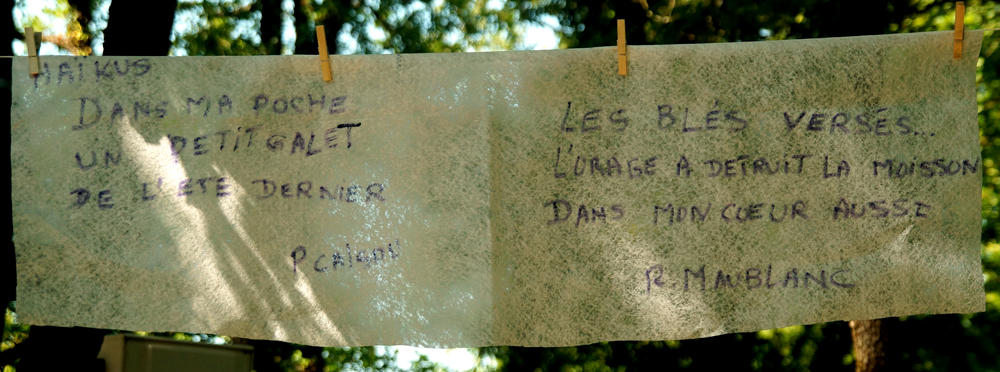 HAÏKUS
DANS MA POCHE
UN PETIT GALET
DE L'ETE DERNIER
P
LES BLÉS VERSÉS...
L'ORAGE A DETRUIT LA MOISSON
DANS MON COEUR AUSSI
R. MAUBLANC